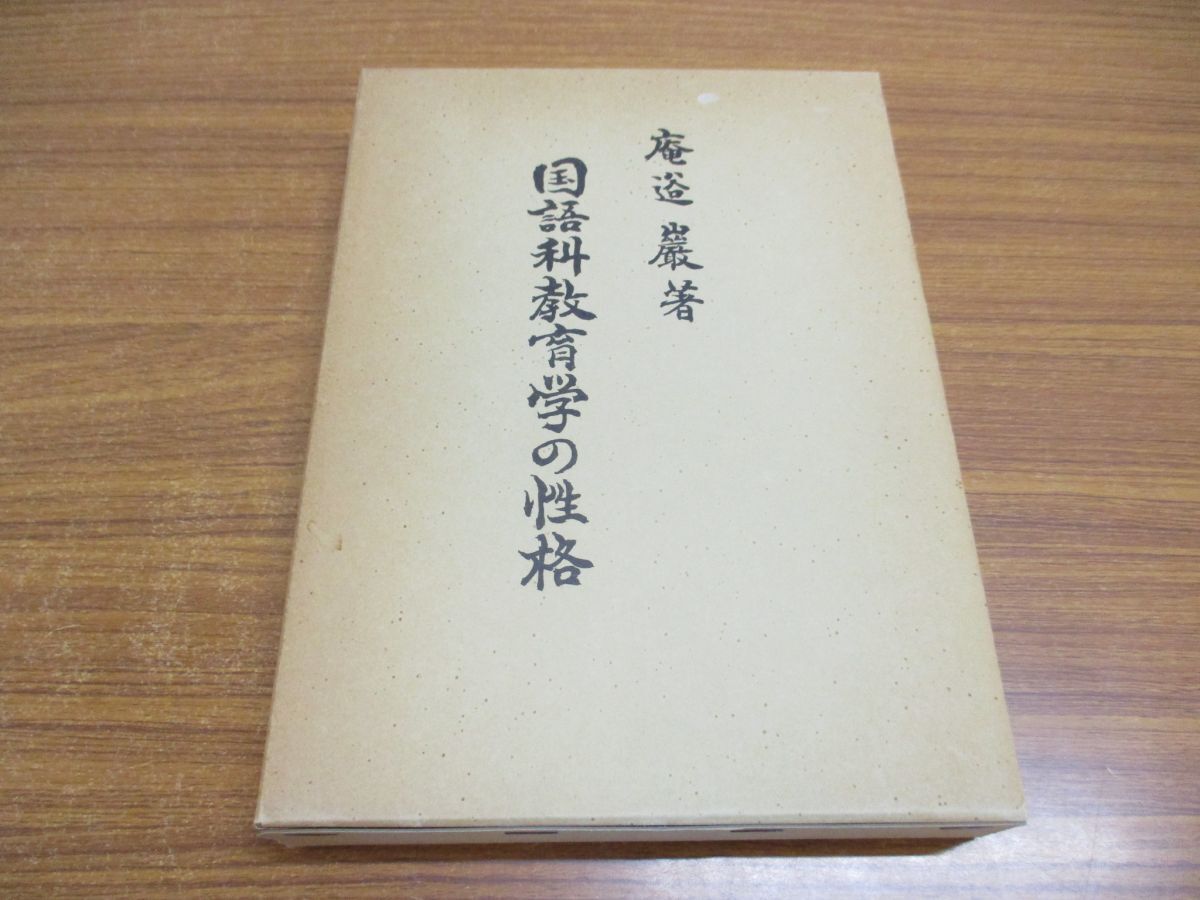 庵逧巖著
国語科教育学の性格